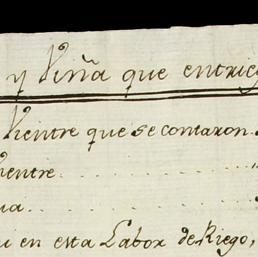 y Viña que entrieg
Vientre que se contaron.
Vientre
ua
ui en esta Labor de Riego,